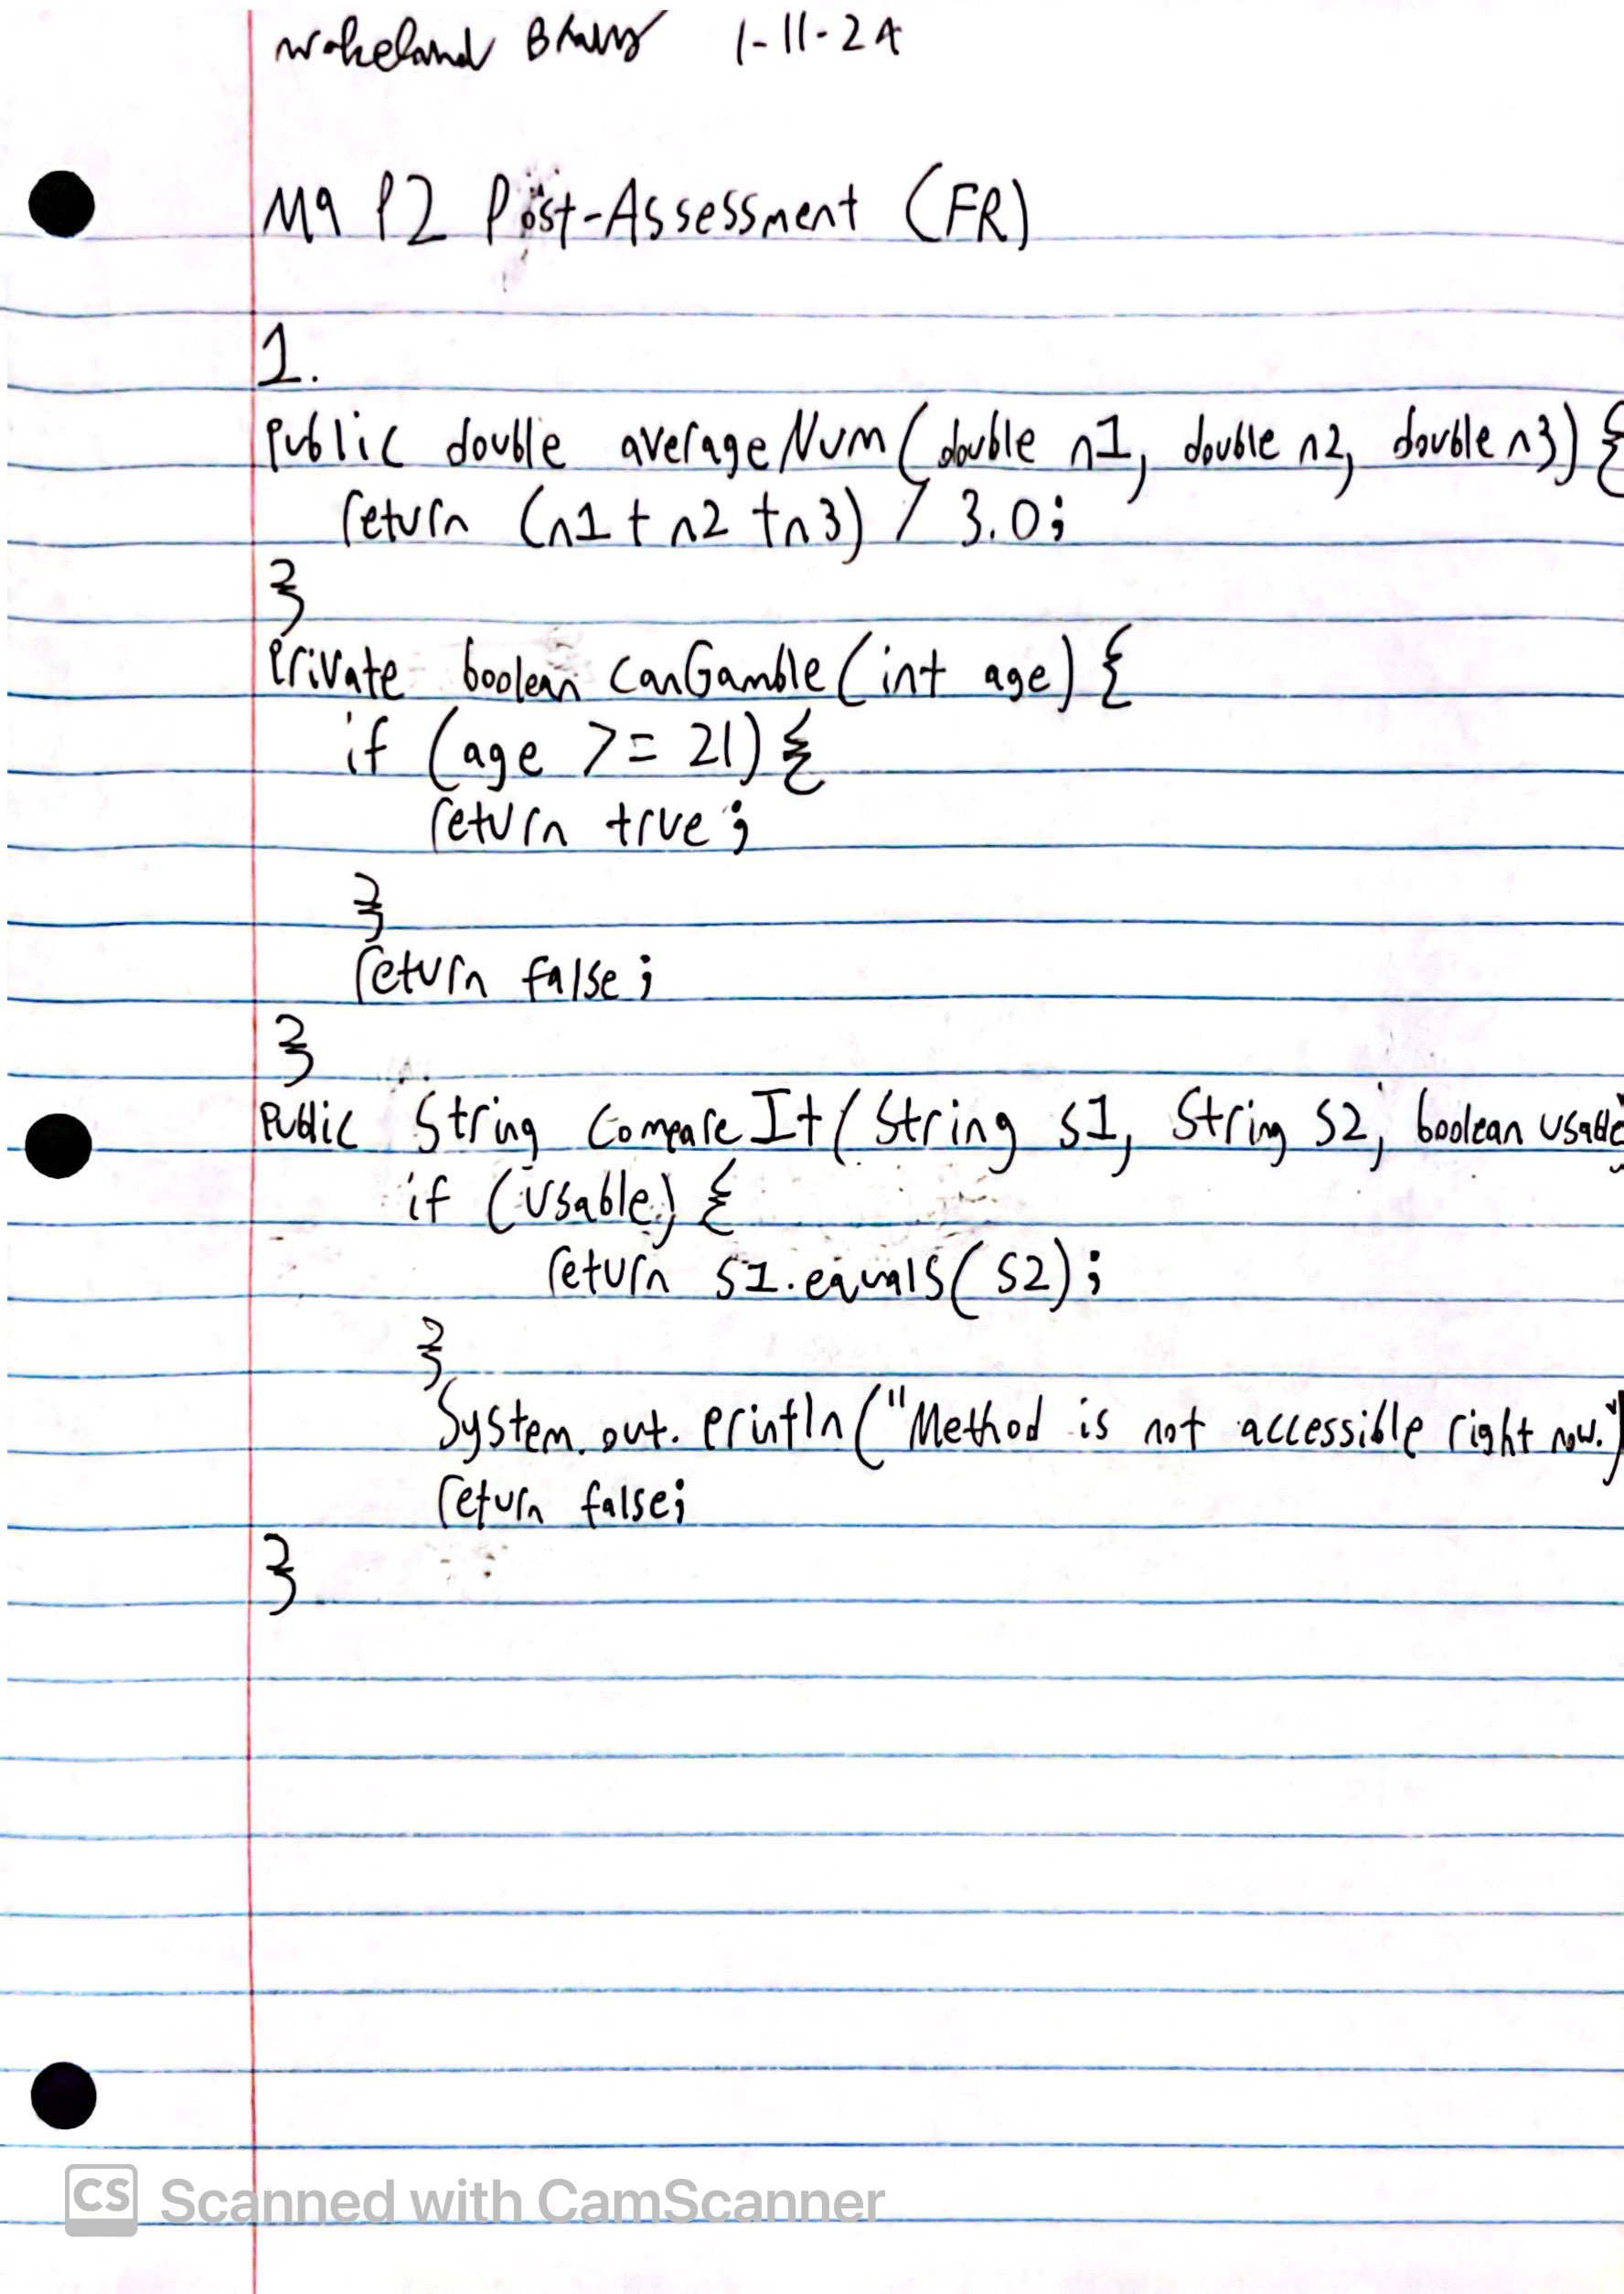 Wakeland 1-11-24
M9 P2 Post-Assessment (FR)
1.
Public double averageNum(double n1, double n2, double n3) {
return (n1 + n2 + n3) / 3.0;
}
Private boolean canGamble(int age) {
if (age >= 21) {
return true;
}
return false;
}
Public String CompareIt(String s1, String s2, boolean usable
if (usable) {
return s1.equals(s2);
}
System.out.println("Method is not accessible right now.")
return false;
}
CS Scanned with CamScanner